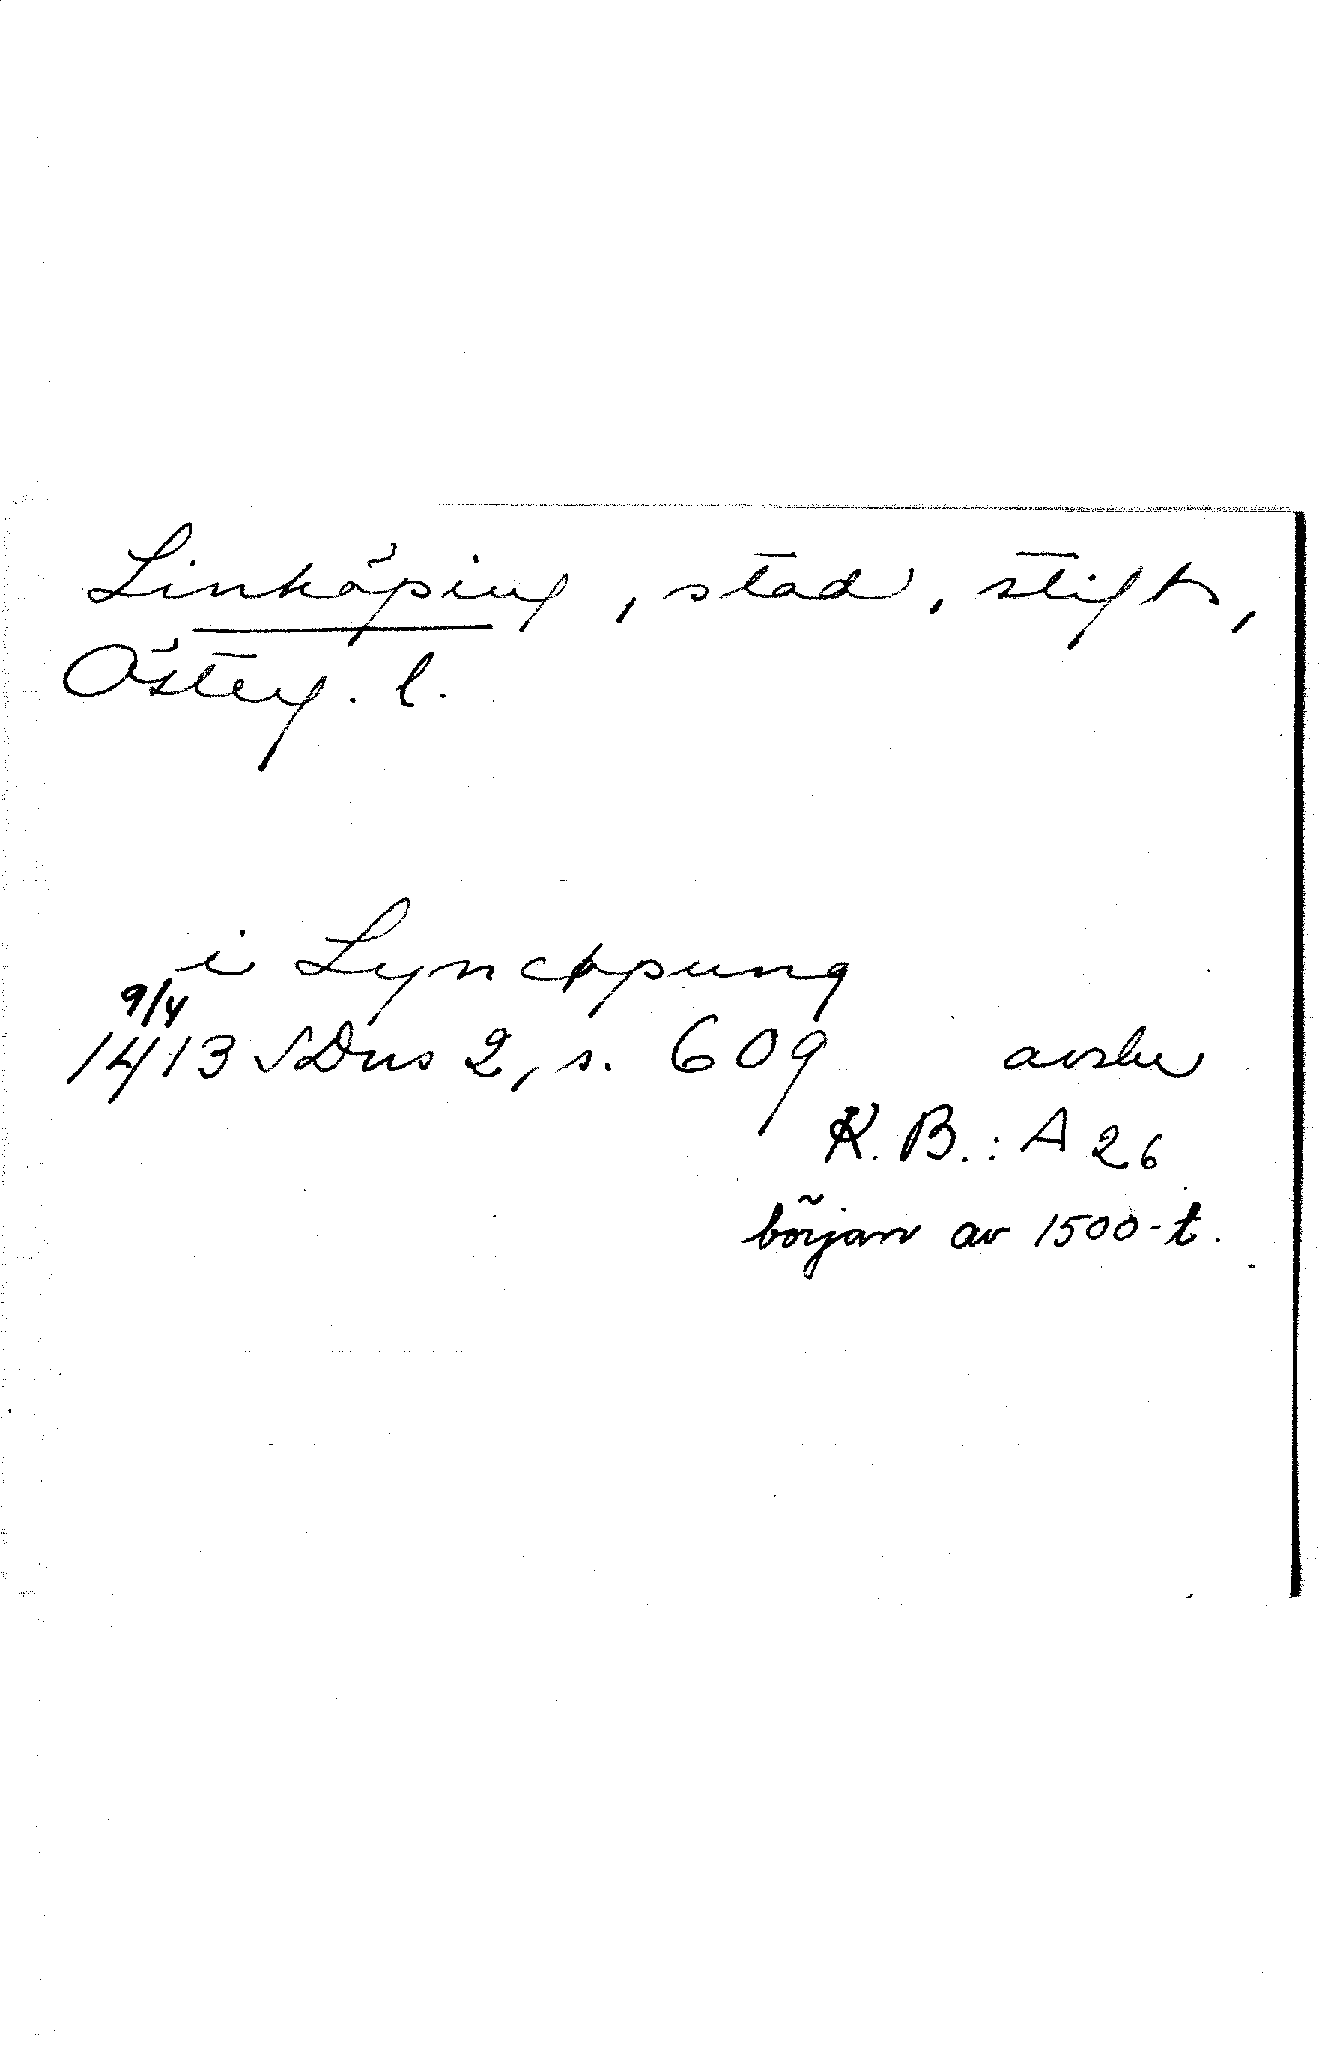 Linköping, stad, stift,
Österg. l.
i Lyncøpung
9/4
1413 SDns 2, s. 609 avskr
K. B.: A 26
början av 1500-t.